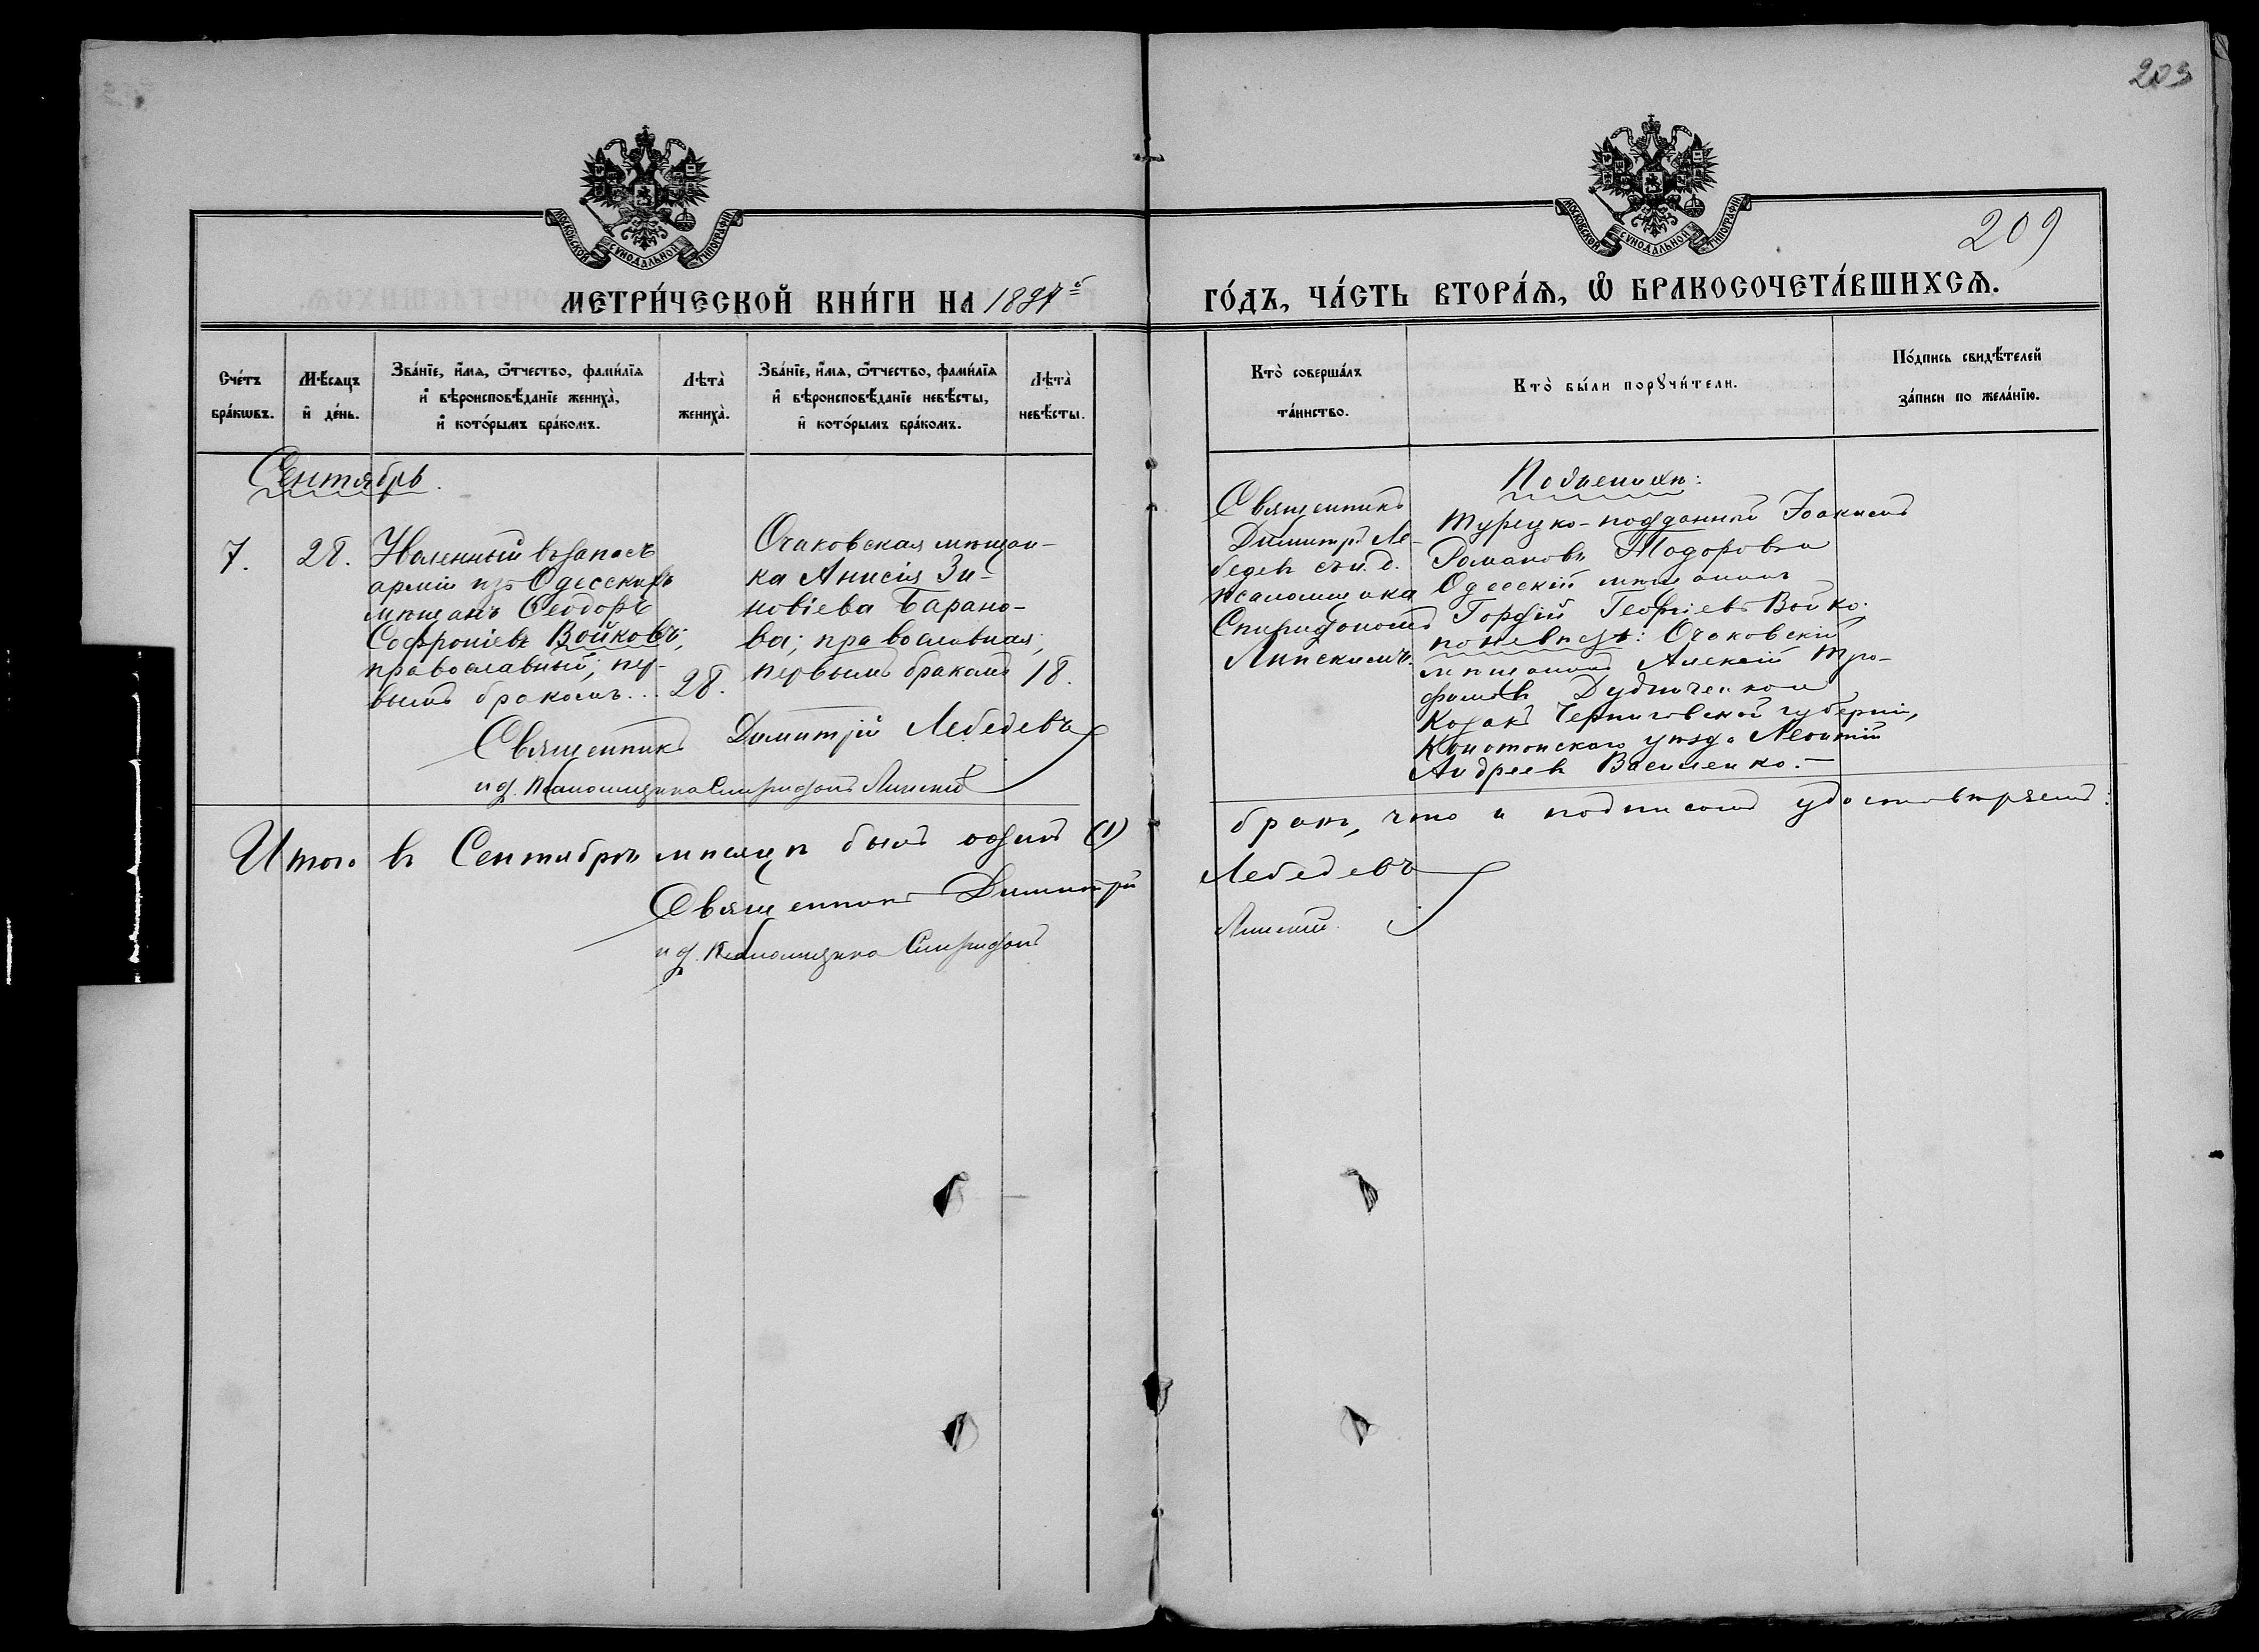 203
МОСКОВСКОЙ СѴНОДАЛЬНОЙ ТИПОГРАФІИ
МОСКОВСКОЙ СѴНОДАЛЬНОЙ ТИПОГРАФІИ
209
МЕТРИ́ЧЕСКОЙ КНИ́ГИ НА 1897й
ГО́ДЪ, ЧА́СТЬ ВТОРА́Ѧ, Ѡ҆ БРАКОСОЧЕТА́ВШИХСѦ.
Сче́тъ бра́кѡвъ.
Мѣ́сяцъ и҆ де́нь.
Зва́нїе, и҆́мѧ, ѻ҆́тчество, фами́лїѧ
и҆ вѣроисповѣ́данїе жениха̀,
и҆ кото́рымъ бра́комъ.
Лѣта̀ жениха̀.
Зва́нїе, и҆́мѧ, ѻ҆́тчество, фами́лїѧ
и҆ вѣроисповѣ́данїе невѣ́сты,
и҆ кото́рымъ бра́комъ.
Лѣта̀ невѣ́сты.
Кто̀ соверша́лъ та́инство.
Кто̀ бы́ли порꙋчи́тели.
По́дпись свидѣ́телей за́писи по жела́нїю.
Сентябрь.
7.
28.
Уволенный въ запасъ
арміи изъ Одесскихъ
мѣщанъ Ѳеодоръ
Софроніевъ Войковъ;
православный; пер-
вымъ бракомъ...
28.
Очаковская мѣщан-
ка Анисія Зи-
новіева Барано-
ва; православная;
первымъ бракомъ
18.
Священникъ Димитрій Лебедевъ
и д. псаломщика Спиридонъ Липскій
Священникъ
Димитрій Ле-
бедевъ съ и. д.
псаломщика
Спиридономъ
Липскимъ.
По женихѣ:
Турецко-подданный Іоакимъ
Романовъ Тодоровъ и
Одесскій мѣщанинъ
Гордій Георгіевъ Войко.
по невѣстѣ: Очаковскій
мѣщанинъ Алексій Тро-
фимовъ Дудниченко и
Козакъ Черниговской губерніи,
Конотопскаго уѣзда Леонтій
Андреевъ Василенко.—
Итого въ Сентябрѣ мѣсяцѣ былъ одинъ (1)
бракъ, что и подписомъ удостовѣряемъ:
Священникъ Димитрій
Лебедевъ
и д. псаломщика Спиридонъ
Липскій.